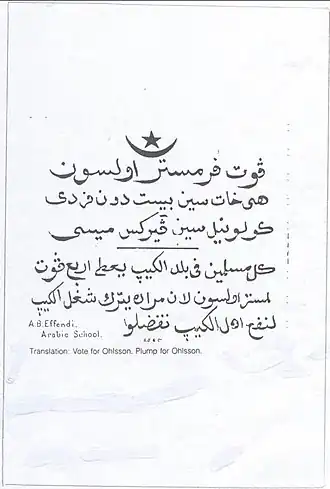 ڤوت فر مستر اولسون
هى خات سين بيست دون فر دى
كولونيل سين ڤيركس ميسى
كل مسلمين فى بلد الكيپ يعطى اربع ڤوت
لمستر اولسون لان مراده يترك شغل الكيپ
لنفع اهل الكيپ تفضلوا
A.B.Effendi.
Arabic School.
Translation: Vote for Ohlsson. Plump for Ohlsson.